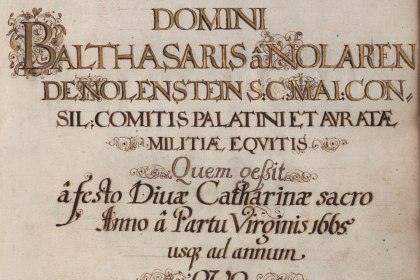 DOMINI
BALTHASARIS â NOLAREN
DE NOLENSTEIN S.C.MAI.CON-
SIL: COMITIS PALATINI ET AVRATÆ
MILITIÆ EQVITIS
Quem gessit
â festo Divæ Catharinæ sacro
Anno â Partu Virginis 1665
usq; ad annum